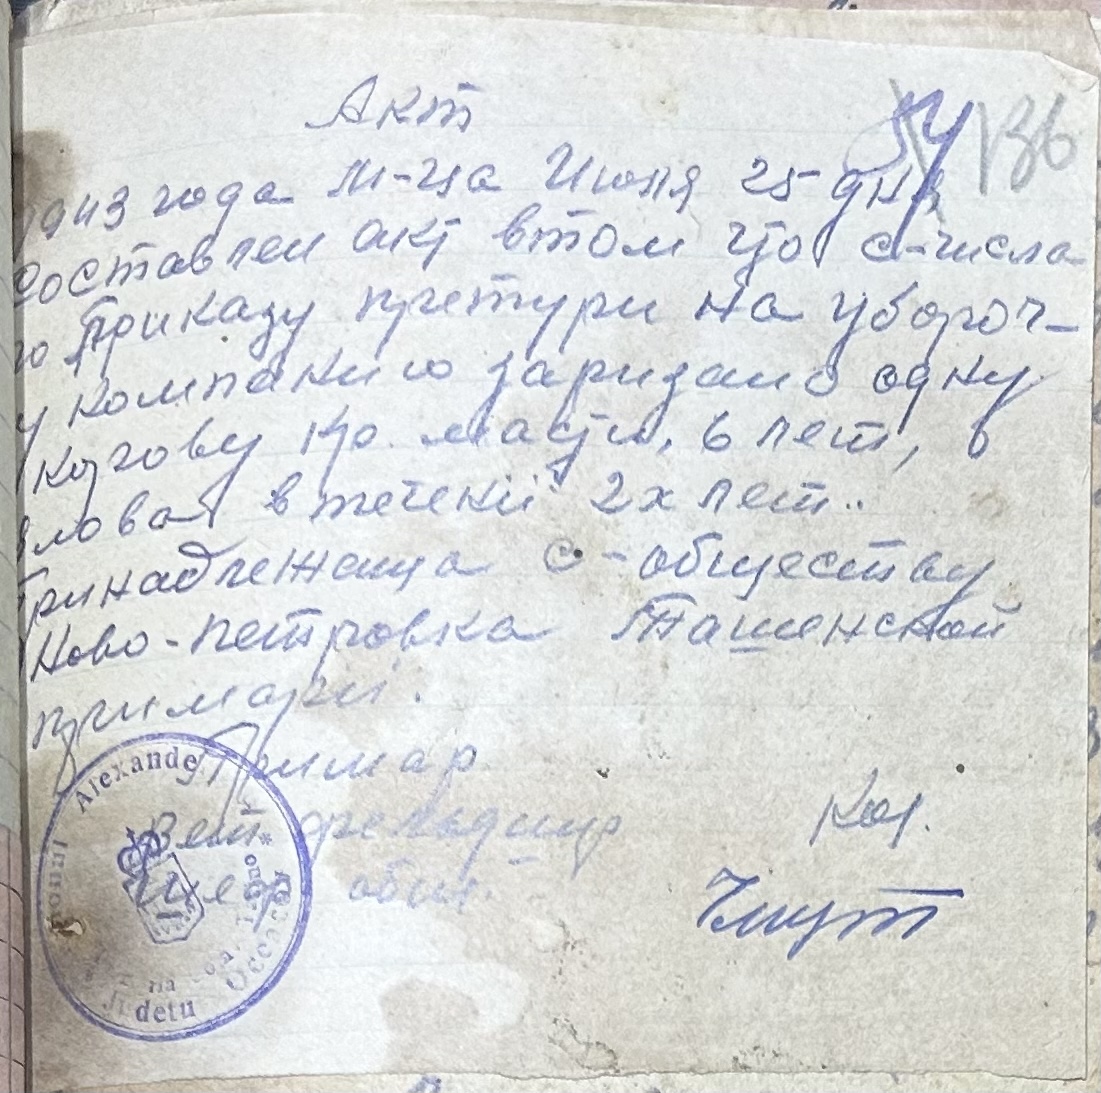 Акт
54 136
1943 года м-ца Июля 25 дня
составлен акт втом что с-числа
по приказу претури на убороч-
у компанию заризано одну
корову кр. масти, 6 лет, в
лова втечении 2х лет..
принадлежаща с-обществу
Ново-петровка Ташенской
примарии.
Примар
Вет. фельдшер
Шеф общ.
Alexande
Judetu